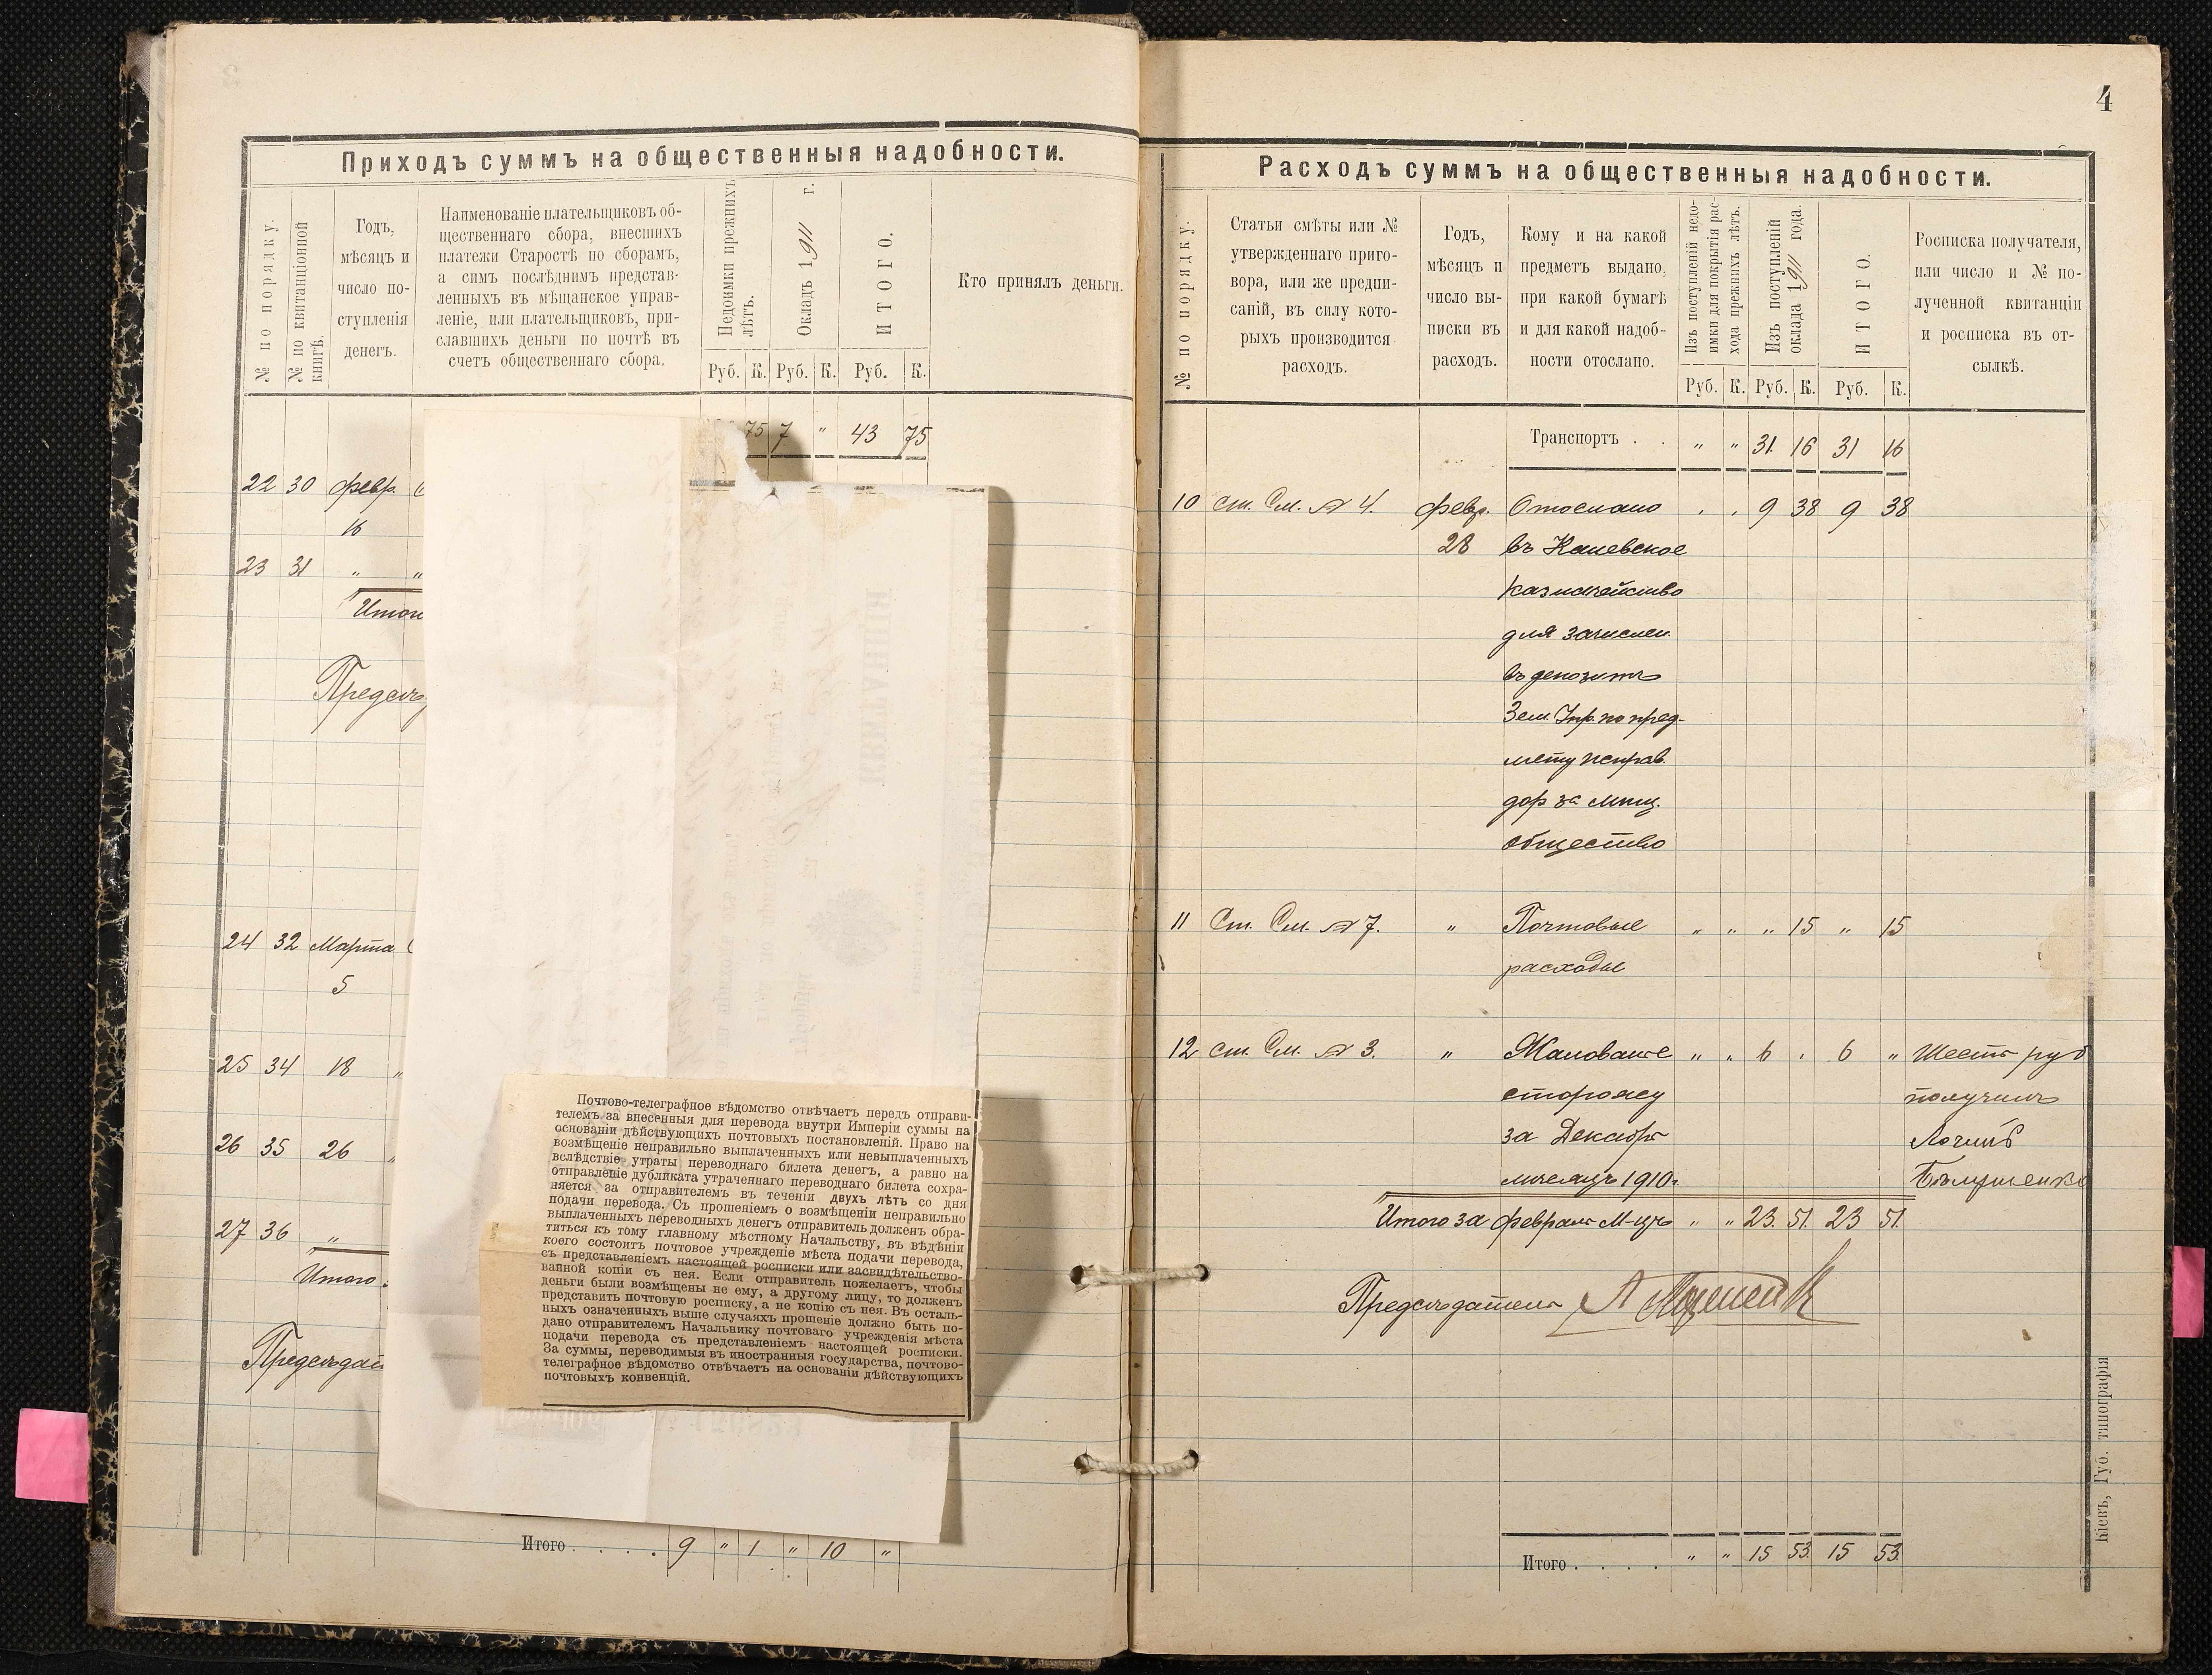 Приходъ суммъ на общественныя надобности.
№ по порядку.
№ по квитанціонной
книгѣ.
Годъ,
мѣсяцъ и
число по-
ступленія
денегъ.
Наименованіе плательщиковъ об-
щественнаго сбора, внесшихъ
платежи Старостѣ по сборамъ,
а симъ послѣднимъ представ-
ленныхъ въ мѣщанское управ-
леніе, или плательщиковъ, при-
славшихъ деньги по почтѣ въ
счетъ общественнаго сбора.
Недоимки прежнихъ
лѣтъ.
Окладъ 1911 г.
ИТОГО.
Кто принялъ деньги.
Руб. К. Руб. К. Руб. К.
75 7 " 43 75
22 30 февр.
16
23 31 " "
Итого
24 32 Марта
5
25 34 18 "
26 35 26 "
27 36 "
Итого
Почтово-телеграфное вѣдомство отвѣчаетъ передъ отправи-
телемъ за внесенныя для перевода внутри Имперіи суммы на
основаніи дѣйствующихъ почтовыхъ постановленій. Право на
возмѣщеніе неправильно выплаченныхъ или невыплаченныхъ
вслѣдствіе утраты переводнаго билета денегъ, а равно на
отправленіе дубликата утраченнаго переводнаго билета сохра-
няется за отправителемъ въ теченіи двухъ лѣтъ со дня
подачи перевода. Съ прошеніемъ о возмѣщеніи неправильно
выплаченныхъ переводныхъ денегъ отправитель долженъ обра-
титься къ тому главному мѣстному Начальству, въ вѣдѣніи
коего состоитъ почтовое учрежденіе мѣста подачи перевода,
съ представленіемъ настоящей росписки или засвидѣтельство-
ванной копіи съ нея. Если отправитель пожелаетъ, чтобы
деньги были возмѣщены не ему, а другому лицу, то долженъ
представить почтовую росписку, а не копію съ нея. Въ осталь-
ныхъ означенныхъ выше случаяхъ прошеніе должно быть по-
дано отправителемъ Начальнику почтоваго учрежденія мѣста
подачи перевода съ представленіемъ настоящей росписки.
За суммы, переводимыя въ иностранныя государства, почтово-
телеграфное вѣдомство отвѣчаетъ на основаніи дѣйствующихъ
почтовыхъ конвенцій.
Итого . . . . 9 " 1 " 10 "
4
Расходъ суммъ на общественныя надобности.
№ по порядку.
Статьи смѣты или №
утвержденнаго приго-
вора, или же предпи-
саній, въ силу кото-
рыхъ производится
расходъ.
Годъ,
мѣсяцъ и
число вы-
писки въ
расходъ.
Кому и на какой
предметъ выдано,
при какой бумагѣ
и для какой надоб-
ности отослано.
Изъ поступленій недо-
имки для покрытія рас-
хода прежнихъ лѣтъ.
Изъ поступленій
оклада 1911 года.
ИТОГО.
Росписка получателя,
или число и № по-
лученной квитанціи
и росписка въ от-
сылкѣ.
Руб. К. Руб. К. Руб. К.
Транспортъ . . " " 31 16 31 16
10 ст. См. № 4. февр. Отослано . . 9 38 9 38
28 въ Каневское
казначейство
для зачислен.
въ депозитъ
Зем. Упр. по пред-
мету исправ.
дор за мѣщ.
общество
11 Ст. См. № 7. " Почтовые " " " 15 " 15
расходы
12 ст. См. № 3. " Жалованіе " " 6 . 6 " Шесть руб
сторожу получилъ
за Декабрь
мѣсяцъ 1910г.
Итого за февраль М-цъ " " 23. 51. 23 51.
Предсѣдатель
Итого . . . . " " 15 53. 15 53.
Кіевъ, Губ. типографія